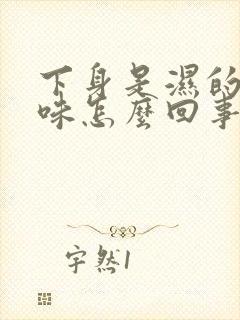 下身是濕的
味怎麼回事
宇然1